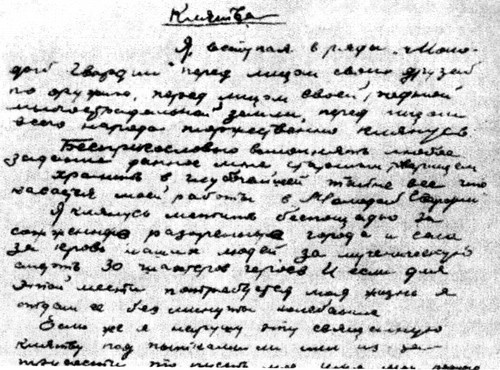 Клятва
Я, вступая в ряды „Моло-
дой Гвардии" перед лицом своих друзей
по оружию, перед лицом своей, родной
многострадальной земли, перед лицом
всего народа торжественно клянусь
Беспрекословно выполнять любое
задание данное мне старшим товарищем
хранить в глубочайшей тайне все что
касается моей работы в Молодой Гвардии
Я клянусь мстить беспощадно за
сожженные разоренные города и села
за кровь наших людей за мученическую
смерть 30 шахтеров героев И если для
этой мести потребуется моя жизнь я
отдам ее без минуты колебания
Если же я нарушу эту священную
клятву под пытками ли или из-за
трусости то пусть мое имя мои родные